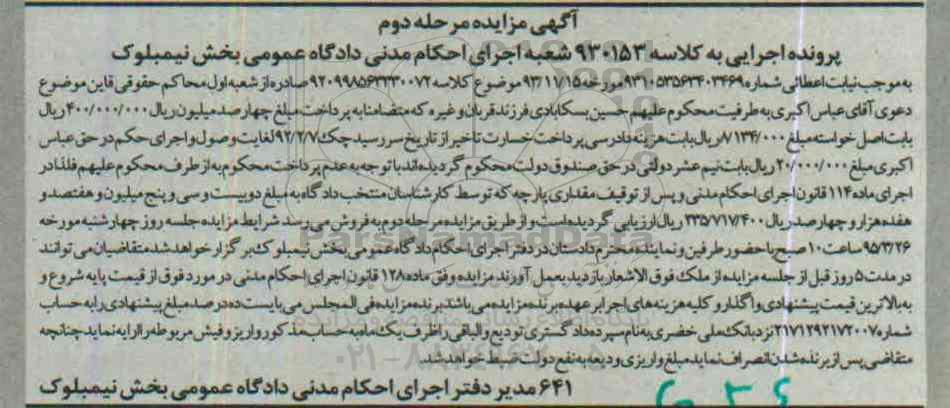 آگهی مزایده مرحله دوم
پرونده اجرایی به کلاسه ۹۳۰۱۵۳ شعبه اجرای احکام مدنی دادگاه عمومی بخش نیمبلوک
به موجب نیابت اعطائی شماره ۹۳۱۰۵۳۵۶۲۴۰۳۴۶۹ مورخه ۹۳/۱۱/۱۵ موضوع کلاسه ۹۲۰۹۹۸۵۶۲۳۳۰۰۷۲ صادره از شعبه اول محاکم حقوقی قاین موضوع
دعوی آقای عباس اکبری به طرفیت محکوم علیهم حسین بسکابادی فرزند قربان و غیره که متضامنا به پرداخت مبلغ چهارصد میلیون ریال ۴۰۰/۰۰۰/۰۰۰ ریال
بابت اصل خواسته مبلغ ۷/۱۳۴/۰۰۰ ریال بابت هزینه دادرسی پرداخت خسارت تاخیر از تاریخ سررسید چک ۹۲/۲/۷ لغایت وصول و اجرای حکم در حق عباس
اکبری مبلغ ۲۰/۰۰۰/۰۰۰ ریال بابت نیم عشر دولتی در حق صندوق دولت محکوم گردیده‌اند با توجه به عدم پرداخت محکوم به از طرف محکوم علیهم فلذا در
اجرای ماده ۱۱۴ قانون اجرای احکام مدنی و پس از توقیف مقداری پارچه که توسط کارشناسان منتخب دادگاه به مبلغ دویست و سی و پنج میلیون و هفتصد و
هفده هزار و چهارصد ریال ۲۳۵/۷۱۷/۴۰۰ ریال ارزیابی گردیده است و از طریق مزایده مرحله دوم به فروش می رسد شرایط مزایده جلسه روز چهارشنبه مورخه
۹۵/۳/۲۶ ساعت ۱۰ صبح با حضور طرفین و نماینده محترم دادستان در دفتر اجرای احکام دادگاه عمومی بخش نیمبلوک برگزار خواهد شد متقاضیان می توانند
در مدت ۵ روز قبل از جلسه مزایده از ملک فوق الاشعار بازدید بعمل آورند مزایده وفق ماده ۱۲۸ قانون اجرای احکام مدنی در مورد فوق از قیمت پایه شروع و
به بالاترین قیمت پیشنهادی واگذار و کلیه هزینه های اجرا بر عهده برنده مزایده می باشد برنده مزایده فی المجلس می بایست ده درصد مبلغ پیشنهادی را به حساب
شماره ۲۱۷۱۲۹۲۱۷۲۰۰۷ نزد بانک ملی خضری به نام سپرده دادگستری تودیع و الباقی را ظرف یک ماه به حساب مذکور واریز و فیش مربوطه را ارایه نماید چنانچه
متقاضی پس از برنده شدن انصراف نماید مبلغ واریزی ودیعه به نفع دولت ضبط خواهد شد
۶۴۱ مدیر دفتر اجرای احکام مدنی دادگاه عمومی بخش نیمبلوک
ParsNamadData